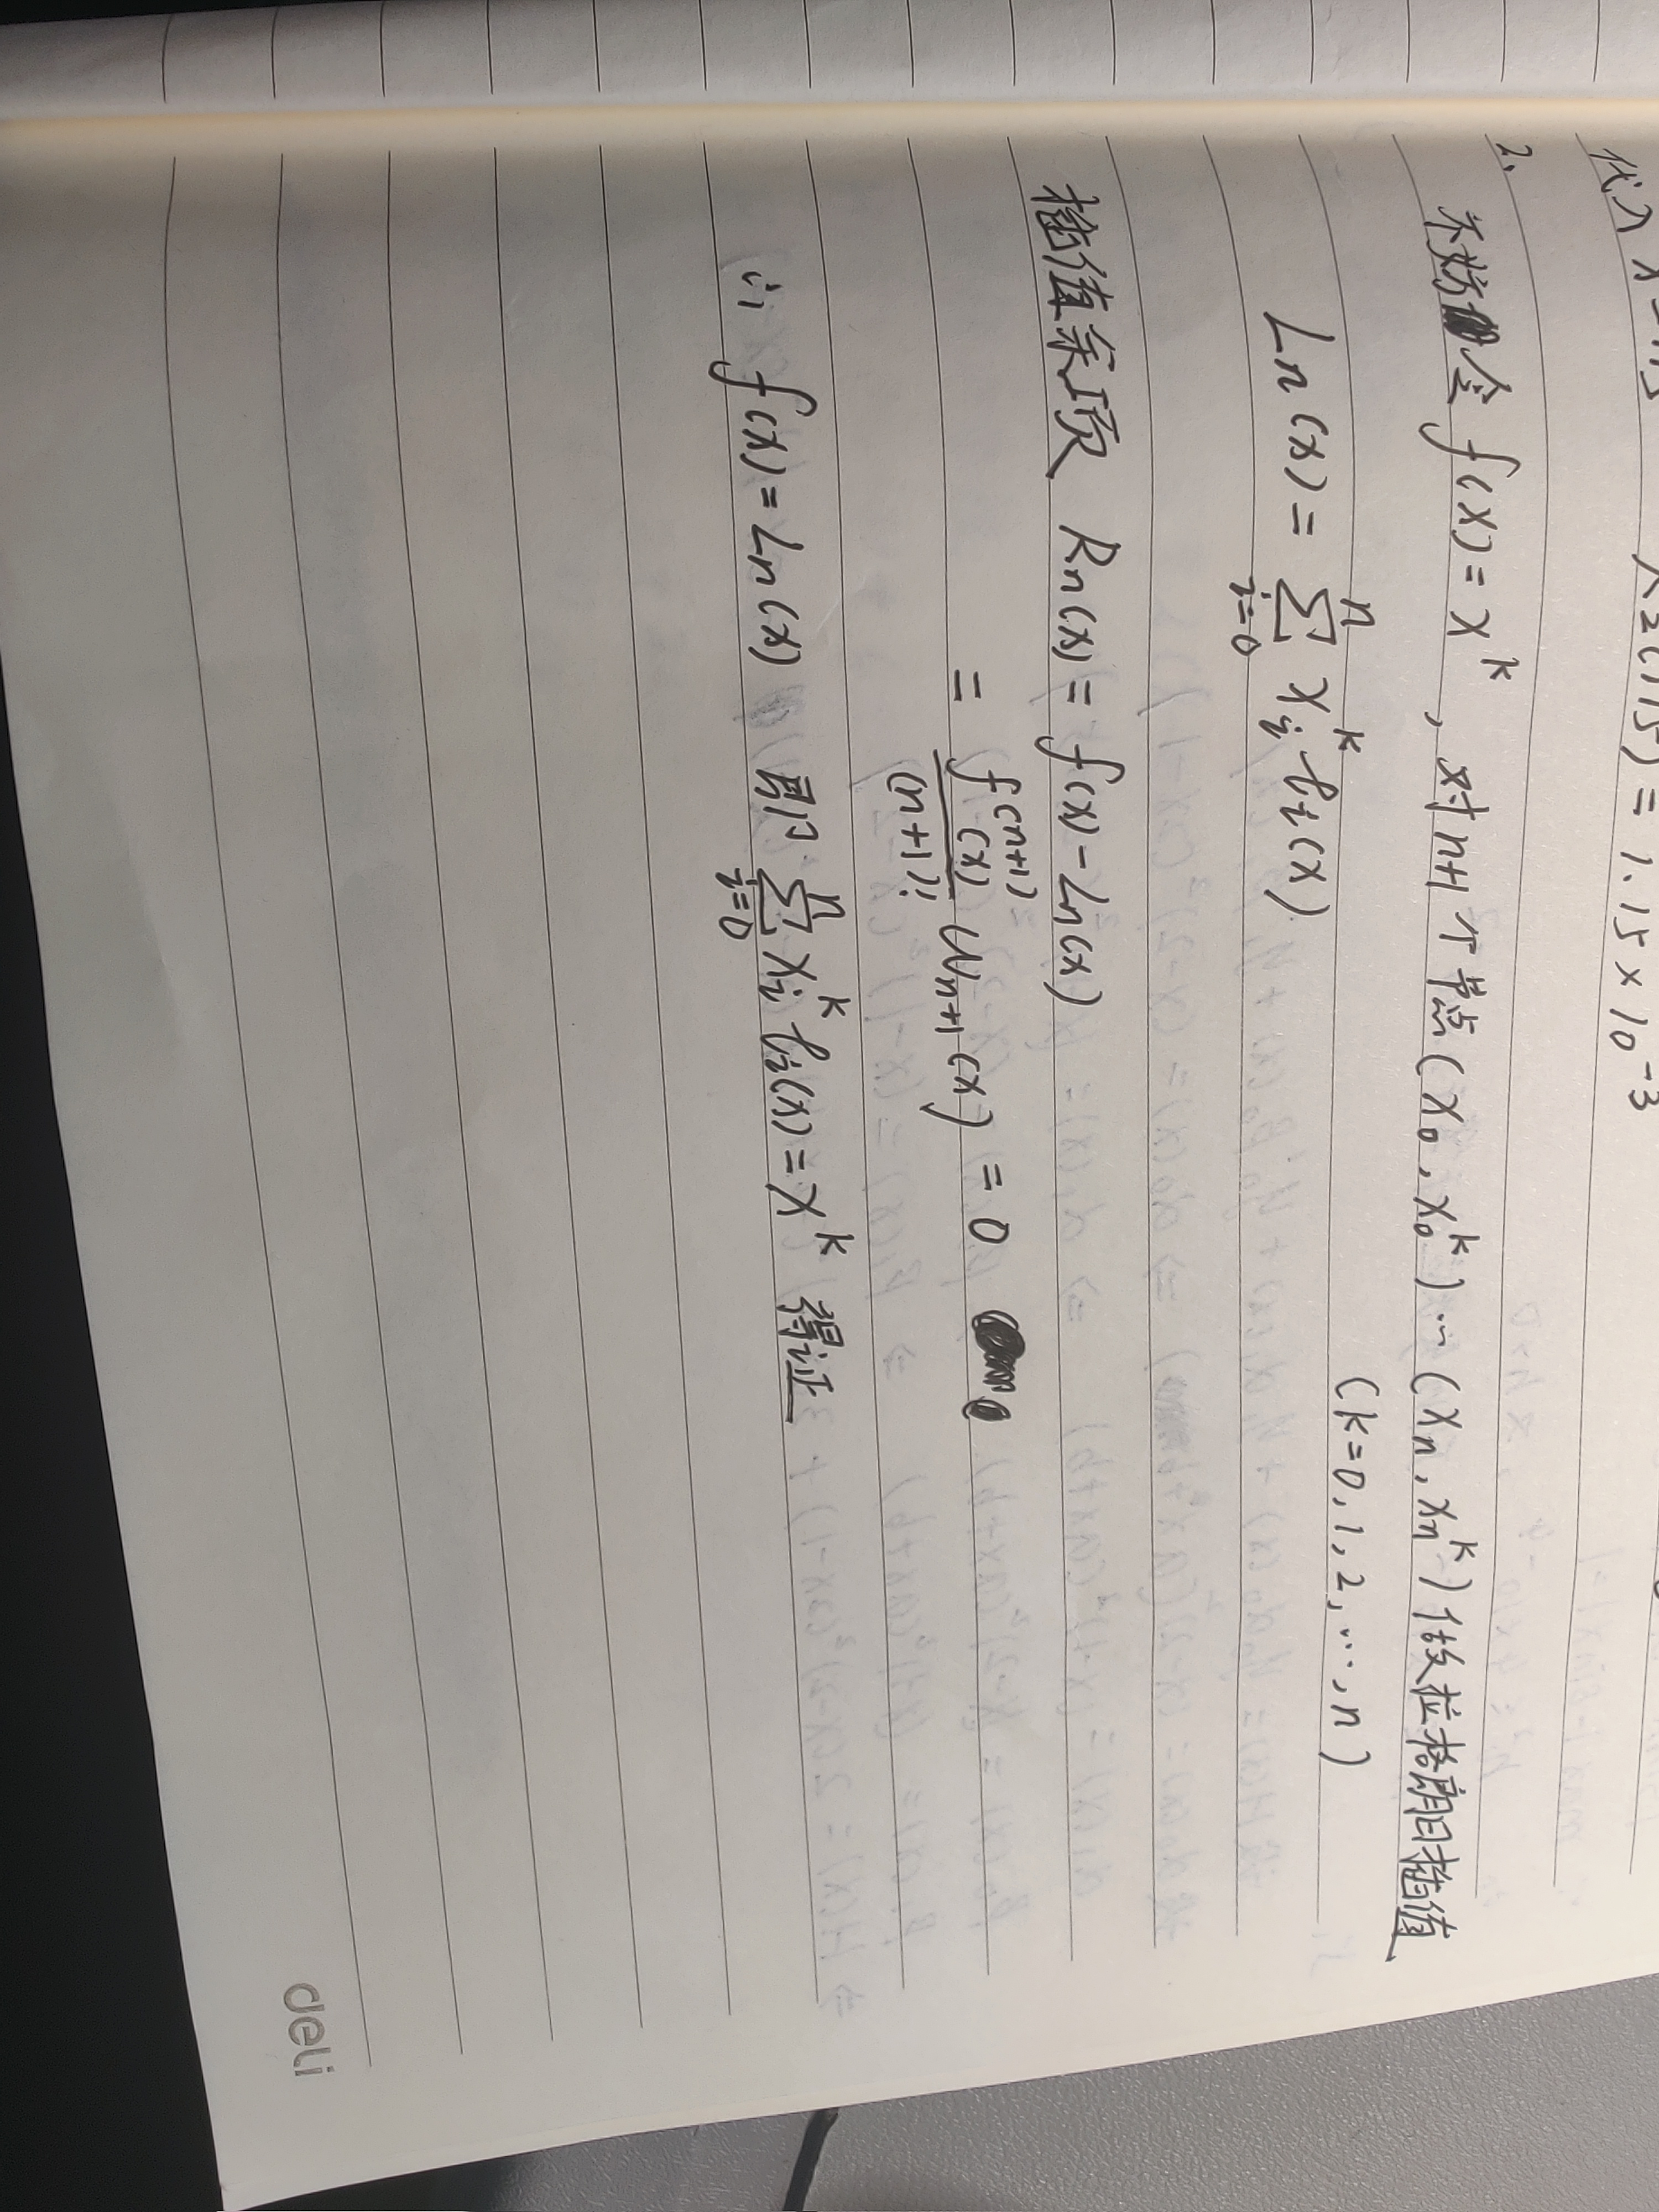 代入 x=1.15 R₂(1.15) = 1.15×10⁻³
2.
不妨令 f(x)=x^k , 对n+1个节点(x₀, x₀^k)…(xₙ, xₙ^k)做拉格朗日插值
(k=0,1,2,…,n)
Lₙ(x)= ∑_{i=0}^{n} x_i^k ℓ_i(x)
插值余项 Rₙ(x)= f(x)-Lₙ(x)
= f^{(n+1)}(x)/(n+1)! ω_{n+1}(x) = 0
∴ f(x)=Lₙ(x) 即 ∑_{i=0}^{n} x_i^k ℓ_i(x)=x^k 得证
deli